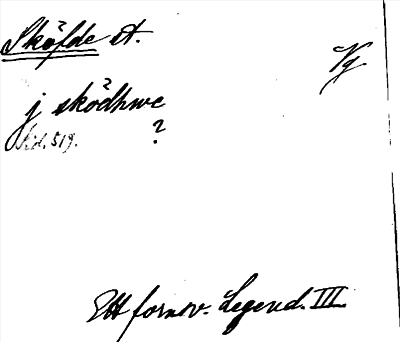 Sköfde st.
Vg
j sködhwe
sid. 519.
?
Ett fornsv. Legend. III